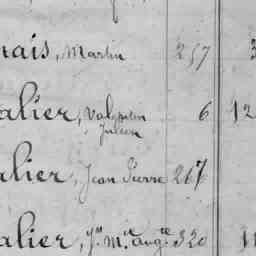 nais, Martin 257 3
alier, Valentin 6 12
Julien
alier, Jean Pierre 267
alier, Jn Mie auge 320 11